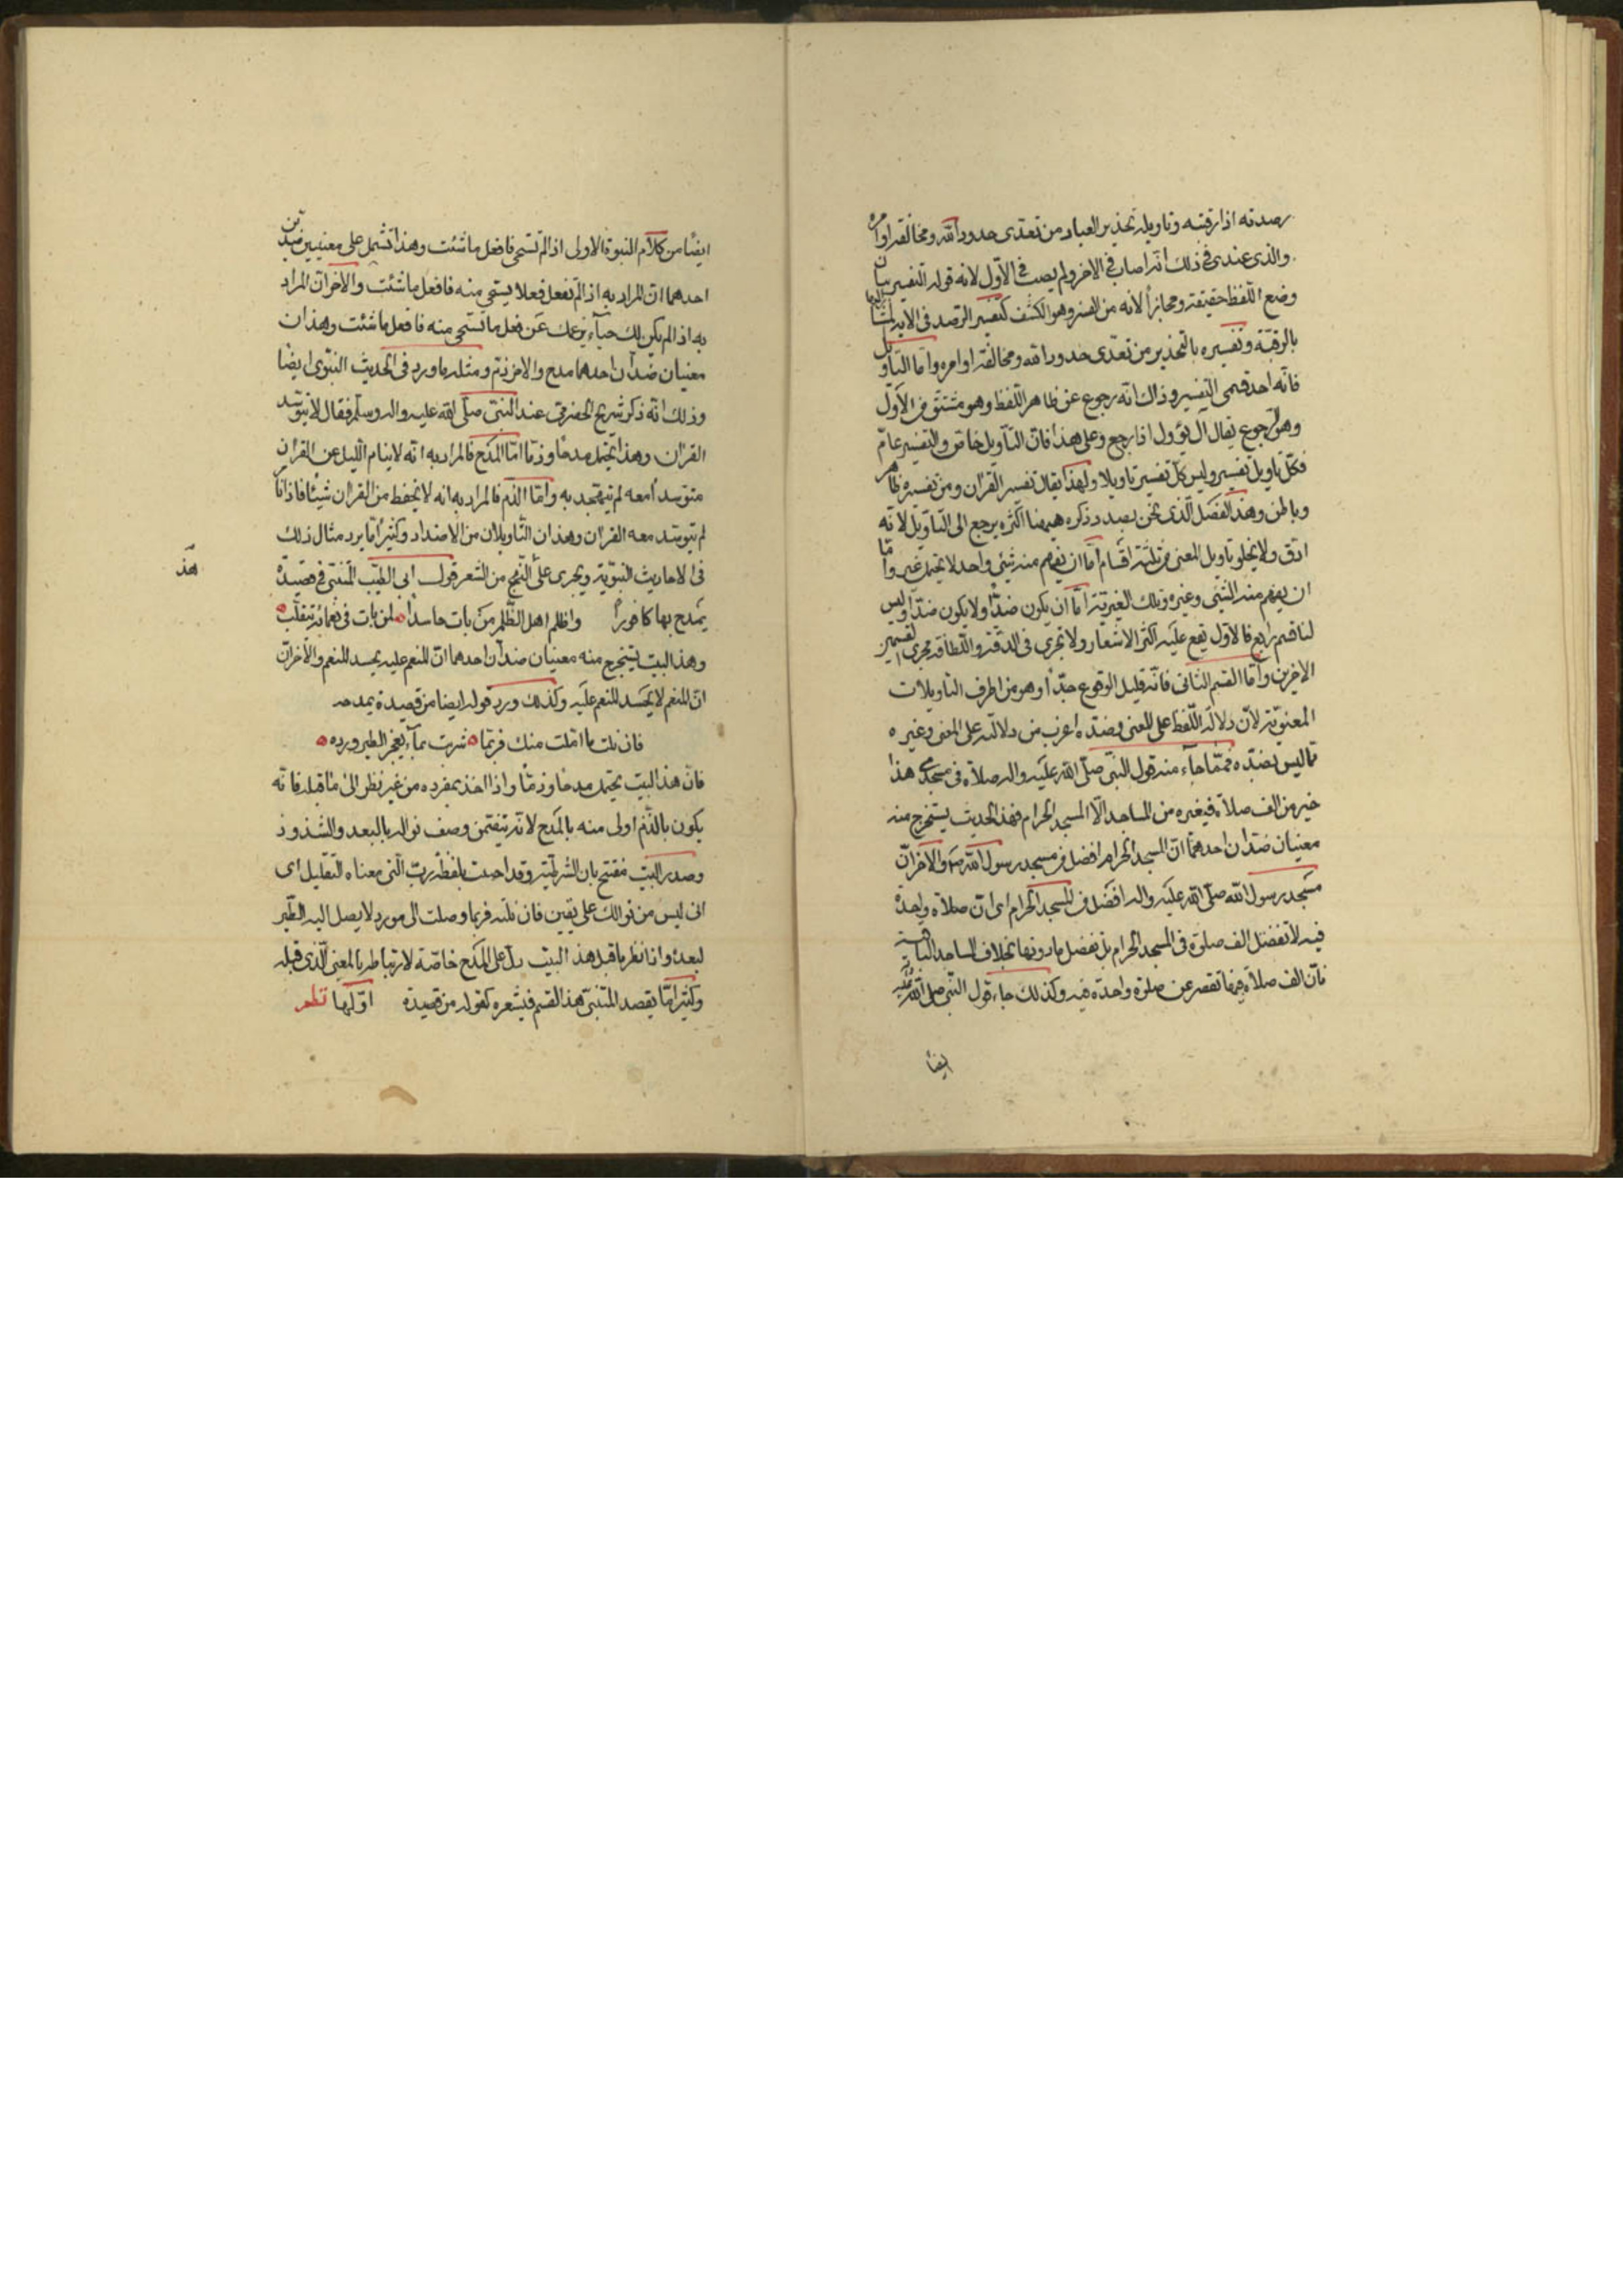 رصدته اذا رقبته وتاويله تحذير العباد من تعدى حدود الله ومخالفة اوامره
والذى عندى فى ذلك انه اصاب فى الاخر ولم يصب فى الاوّل لانه قوله التفسير بيان
وضع اللفظ حقيقة ومجازاً لانه من الفسر وهو الكشف كتفسير الرصد فى الاية المشار اليها
بالرقبة وتفسيره بالتحذير من تعدى حدود الله ومخالفة اوامره وامّا التاويل
فانّه احد قسمى التفسير وذاك انّه رجوع عن ظاهر اللّفظ وهو مشتق من الاَوْل
وهو الرجوع يقال آل يؤول اذا رجع وعلى هذا فانّ التاويل خاصّ والتفسير عامّ
فكلّ تاويل تفسير وليس كلّ تفسير تاويلا ولهذا يقال تفسير القرآن ومن تفسيره ظاهر
وباطن وهذا الفصل الّذى نحن بصدد ذكره هيهنا اكثره يرجع الى التّاويل لانّه
ادقّ ولا يخلو تاويل المعنى من ثلثة اقسام امّا ان يفهم منه شيئ واحد لا يحتمل غيره وامّا
ان يفهم منه الشيئ وغيره وتلك الغيرية امّا ان يكون ضدّاً ولا يكون ضدّاً وليس
لنا قسم رابع فالاول يقع عليه اكثر الاشعار ولا تجرى فى الدقّة واللّطافة مجرى القسمين
الاخرين وامّا القسم الثانى فانّه قليل الوقوع جدّاً وهو من اظرف التاويلات
المعنويّة لانّ دلالة اللّفظ على المعنى وضدّه اغرب من دلالته على المعنى وغيره
ممّا ليس بضدّه فممّا جاء منه قول النبى صلّى الله عليه واله صلاة فى مسجدى هذا
خير من الف صلاة فى غيره من المساجد الّا المسجد الحرام فهذا الحديث يستخرج منه
معنيان ضدّان احدهما انّ المسجد الحرام افضل من مسجد رسول الله والاخر انّ
مسجد رسول الله صلّى الله عليه واله افضل من المسجد الحرام اى انّ صلاة واحدة
فيه لا تفضل الف صلوة فى المسجد الحرام بل تفضل ما دونها بخلاف المساجد الباقية
فانّ الف صلاة فيها تقصر عن صلوة واحدة فيه وكذلك جاء قول النّبى صلى الله عليه
ايضاً
ايضاً من كلام النبوة الاولى اذا لم تستحى فافعل ما شئت وهذا تشتمل على معنيين ضدين
احدهما انّ المراد به اذا لم تفعل فعلا يستحى منه فافعل ما شئت والاخر انّ المراد
به اذا لم يكن لك حياء يزعك عن فعل ما تستحى منه فافعل ما شئت وهذان
معنيان ضدّان احدهما مدح والاخر ذمّ ومثله ما ورد فى الحديث النبوّى ايضاً
وذلك انّه ذكر شريح الحضرمى عند النبىّ صلّى الله عليه واله وسلّم فقال لا يتوسّد
القرآن وهذا يحتمل مدحاً وذمّاً امّا المدح فالمراد به انّه لا ينام الّليل عن القرآن
متوسداً معه لم يتهجّد به وامّا الذّم فالمراد به انه لا يحفظ من القرآن شيئاً فاذا نام
لم يتوسّد معه القرآن وهذان التّاويلان من الاضداد وكثيراً مّا يرد مثال ذلك
فى الاحاديث النبويّة ويجرى على النّهج من الشعر قول ابى الطيّب المتنبّى فى قصيدة
هذا
يمدح بها كافوراً واظلم اهل الظّلم من بات حاسداً لمن بات فى نعمائه يتقلّب
وهذا البيت يستخرج منه معنيان ضدّان احدهما انّ المنعم عليه يحسد المنعم والاخر انّ
انّ المنعم لا يحسد المنعم عليه وكذلك ورد قوله ايضا من قصيدة يمدحه
فان نلت ما امّلت منك فربّما شربت بماء يعجز الطير ورده
فانّ هذا البيت يحتمل مدحاً وذمّاً واذا اخذ بمفرده من غير نظر الى ما قبله فانّه
يكون بالذّم اولى منه بالمدح لانّه يتضمّن وصف نواله بالبعد والشذوذ
وصدر البيت مفتتح بان الشرطية وقد اجيب بلفظة ربّ الّتى معناه التّقليل اى
انى ليس من نوالك على يقين فان نلته فربما وصلت الى مورد لا يصل اليه الطّير
لبعده واذا نظر ما قبل هذا البيت دلّ على المدح خاصّة لارتباطه بالمعنى الّذى قبله
وكثيراً مّا يقصد المتنبّى هذا القسم فى شعره كقوله من قصيدة اوّلها